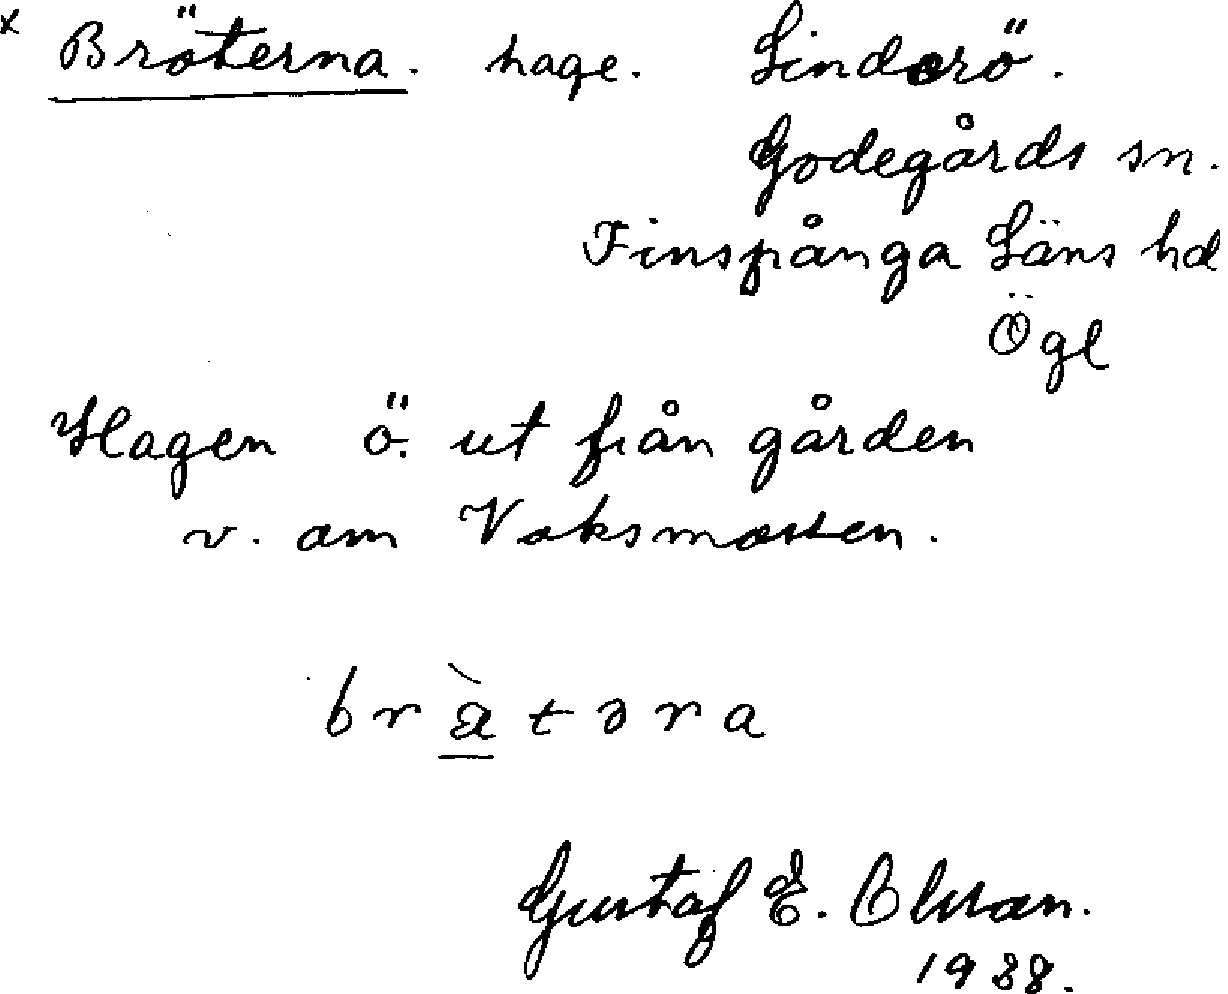 x Bröterna. hage. Linderö.
Godegårds sn.
Finspånga Läns hd
Ögl
Hagen ö. ut från gården
v. om Vaksmossen.
bratəra
Gustaf E. Olsson.
1938.